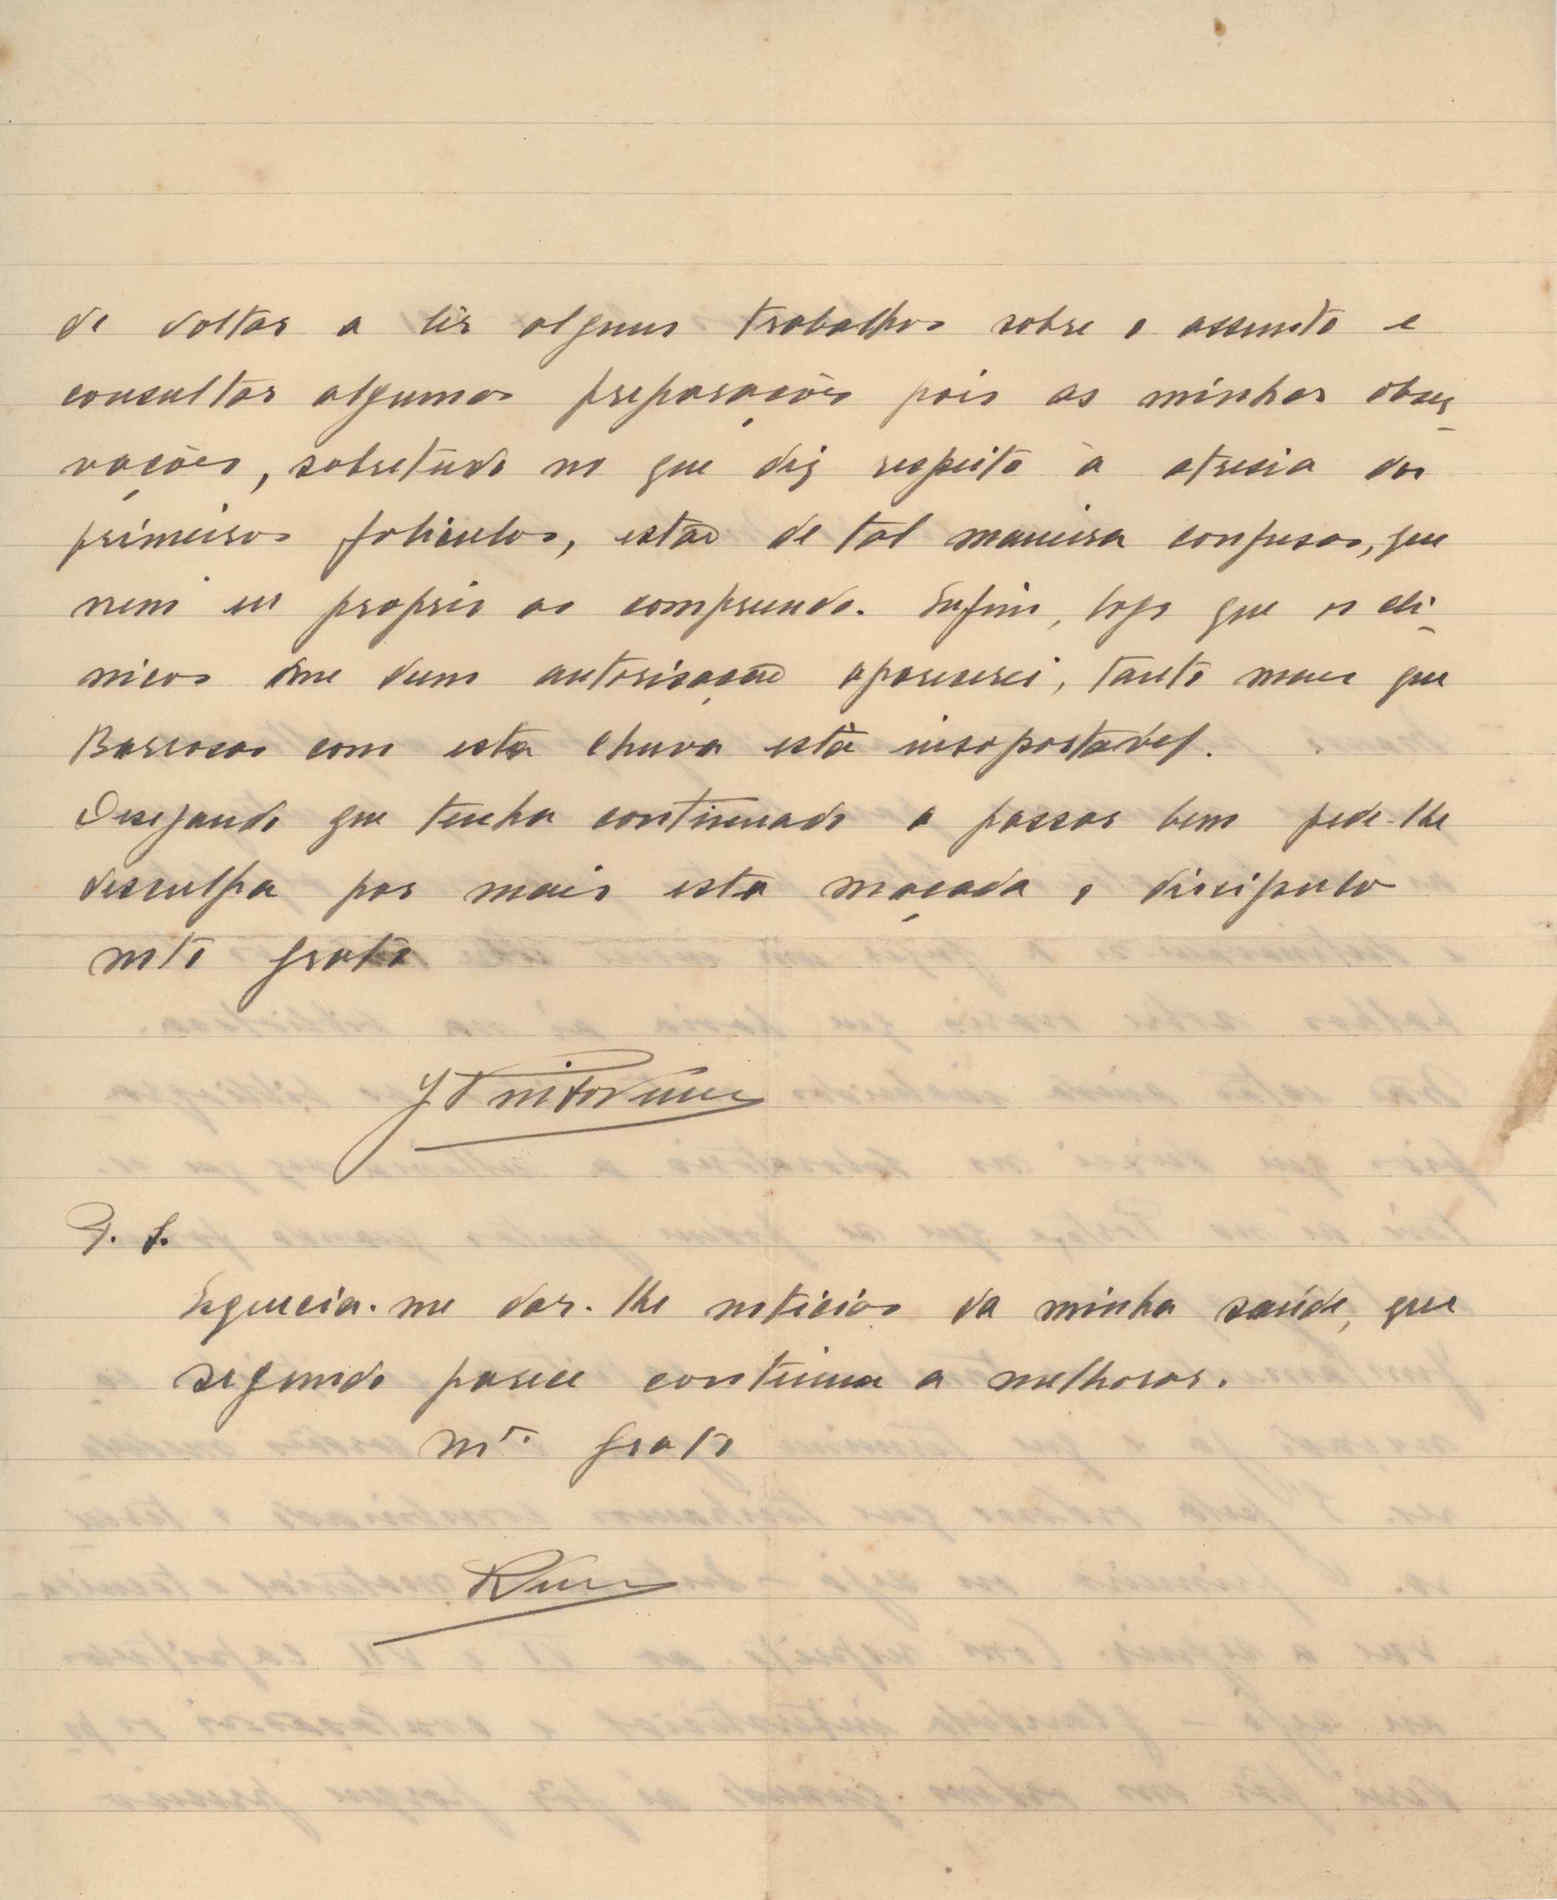 de voltar a lêr alguns trabalhos sobre o assunto e
consultar algumas preparações pois as minhas obser-
vações, sobretudo no que diz respeito à atresia dos
primeiros foliculos, estão de tal maneira confusas, que
nem eu proprio as comprendo. Enfim, logo que os cli-
nicos me dêm autorisação aparecerei, tanto mais que
Barrosas com esta chuva está insuportável.
Desejando que tenha continuado a passar bem pede-lhe
desculpa por mais esta maçada o discipulo
mto grato
P. S.
Esquecia-me dar-lhe noticias da minha saúde, que
segundo parece continua a melhorar.
mto. grato